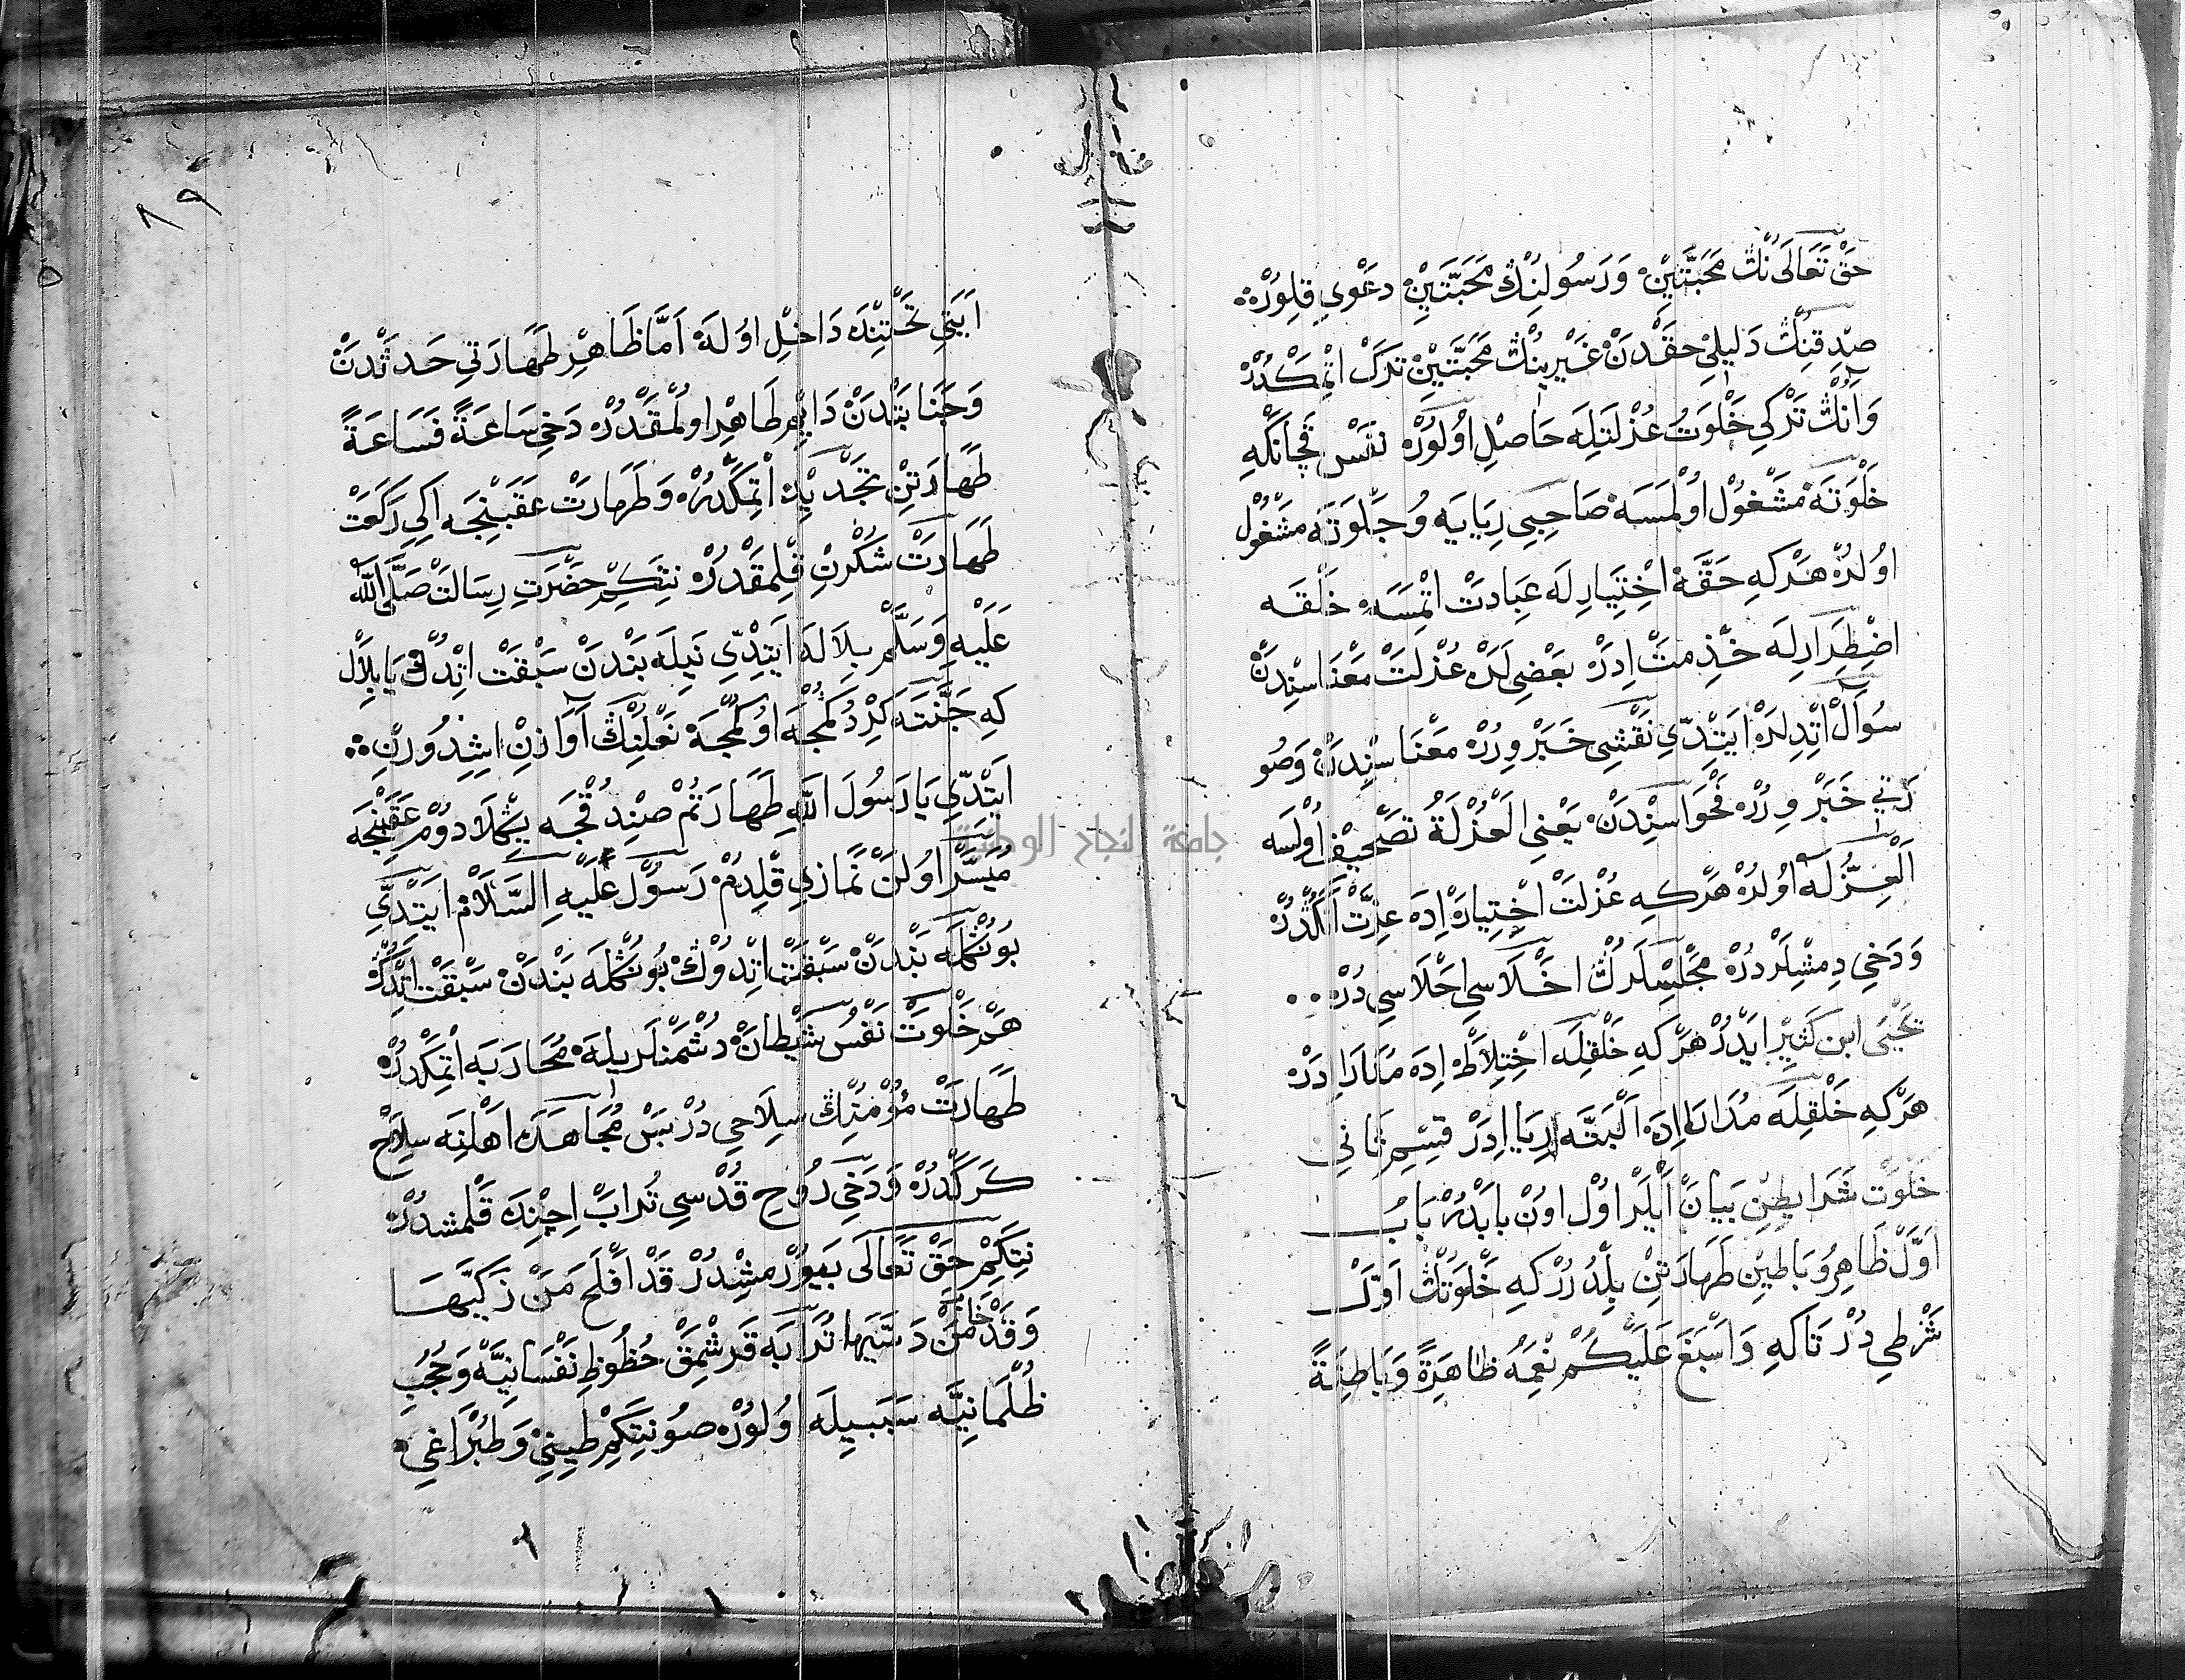 حَقْ تَعَالَىنُكْ مَحَبَّتَيِنْ وَرَسُولِنِڭْ مَحَبَّتَيِنْ دَعْوِي قِلِوُرْ
صِدِقِنِڭْ دَلِيلِي حَقْدَنْ غَيْرِينُڭْ مَحَبَّتَيِنْ تَرَكْ اتْمِكْدُرْ
وَاَنُڭْ تَرْكِي خَلْوَتُ عُزْلَتِلَه حَاصِلْ اُولُورْ نَفَسْ قَچَانْكَه
خَلْوَتَه مَشْغُولْ اُولْمَسَه صَاحِبِي رِيَايَه وُجَلْوَتَه مَشْغُولْ
اوُلُرْ هَرْكِه حَقَّه اخْتِيَارِلَه عِبَادَتْ اتْمِسَه خَلْقَه
اضْطِرَارِلَه خِذِمَتْ اِدَرْ بَعْضِيلَرْ عُزْلَتْ مَعْنَاسِنْدَنْ
سُوَآلْ اتْدِلَرْ اَيِتْدِي نَقْشِي خَبَرْ وِرُرْ مَعْنَاسِنْدَنْ وَصُو
رَتِي خَبَرْ وِرُرْ فَحْوَاسِنْدَنْ يَعْنِي الْعُزْلَةُ تَصْحِيفْ اُولْسَه
اَلْعِزُّلَهُ اوُلُرْ هَرْكِه عُزْلَتْ اخْتِيَارْ اِدَه عِزَّتْ اَنُكْدُرْ
وَدَخِي دِمِشْلَرْدُرْ مَجْلِسْلَرُڭْ اخْلَاسِي اَحْلَاسِي دُرْ
يَحْيَى ابن كَثِيرْ ايْدُرْ هَرْكِه خَلْقِلَه اخْتِلَاطْ اِدَه مُدَارَا اِدَرْ
هَرْكِه خَلْقِلَه مُدَارَا اِدَه اَلْبَتَّه اِرِيَا اِدَرْ قِسْمِ ثَانِي
خَلْوَتْ شَرَايِطِنْ بَيَانْ اَيْلَرْ اوُلْ اوُنْ بَابْدُرْ بَابْ
اَوَّلْ ظَاهِرُ وُبَاطِينْ طَهَارَتِنْ بِلْدُرُرْ كِه خَلْوَتُڭْ اَوَّلْ
شَرْطِي دُرْ تَاكِه وَاَسْبَغَ عَلَيْكُمْ نِعَمَهُ ظَاهِرَةً وَبَاطِنَةً
٨٩
اَيَتِي تَحْتِنْدَه دَاخِلْ اوُلَه اَمَّا ظَاهِرْ طَهَارَتِي حَدَثْدَنْ
وَجَنَابَتْدَنْ دَايِمْ طَاهِرْ اولْمَقْدُرْ دَخِي سَاعَةً فَسَاعَةً
طَهَارَتِنْ تَجْدِيدْ اتْمِكْدُرْ وَطَهَارَتْ عَقَبِنْجَه اكِي رَكَعَتْ
طَهَارَتْ شُكْرِنْ قِلْمَقْدُرْ نِتَكِمْ حَضْرَتِ رِسَالَتْ صَلَّى اللّٰه
عَلَيْهِ وَسَلَّمْ بِلَالَه اَيِتْدِي نَيِلَه بَنْدَنْ سَبْقَتْ اتْدُڭْ يَا بِلَالْ
كِه جَنَّتَه كِرْدُكُمْجَه اوُكُمْجَه نَعْلِنِڭْ اَوَازِنْ اِشِدُورِنْ
اَيِتْدِي يَا رَسُولَ اللّٰهِ طَهَارَتُمْ صِنْدُقْجَه يِڭِلَادُومْ عَقَبِنْجَه
مُيَسَّرْ اوُلَنْ نَمَازِي قِلْدُمْ رَسُولْ عَلَيْهِ السَّلَامْ اَيِتْدِي
بُونُڭْلَه بَنْدَنْ سَبْقَتْ اتْدُوڭْ بُونُڭْلَه بَنْدَنْ سَبْقَتْ اتْدُڭْ
هَرْ خَلْوَتْ نَفْسُ شَيْطَانْ دُشْمَنْلَرِيلَه مُحَارَبَه اتْمِكْدُرْ
طَهَارَتْ مُؤْمِنِڭْ سِلَاحِي دُرْ بَسْ مُجَاهَدَه اَهْلِنَه سِلَاحْ
كَرَكْدُرْ وَدَخِي رُوحِ قُدْسِي تُرَابْ اِچِنْدَه قَلْمِشْدُرْ
نِتَكِمْ حَقْ تَعَالَى بَيُورْمِشْدُرْ قَدْ اَفْلَحَ مَنْ زَكَّيهَا
وَقَدْ خَابَ مَنْ دَسَّيهَا تُرَابَه قَرِشْمَقْ حُظُوظِ نَفْسَانِيَّه وَحُجُبِ
ظُلْمَانِيَّه سَبَبِيلَه اوُلُورْ صُو نِتَكِمْ طِينِي وَطُبْرَاغِي
جامعة النجاح الوطنية